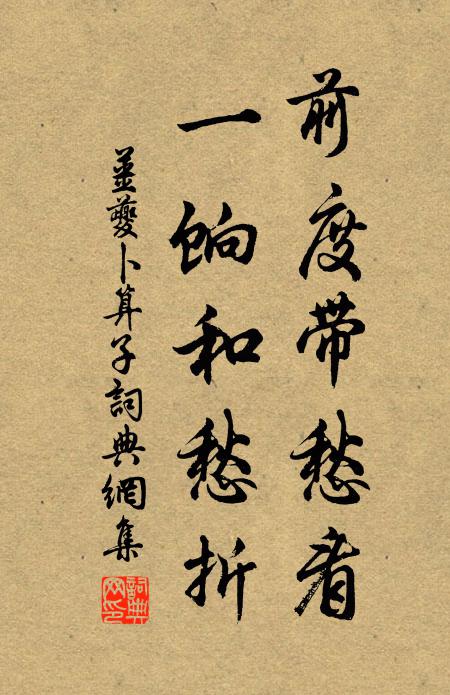 前度带愁看
一饷和愁折
姜夔卜算子詞典網集
詞典网印